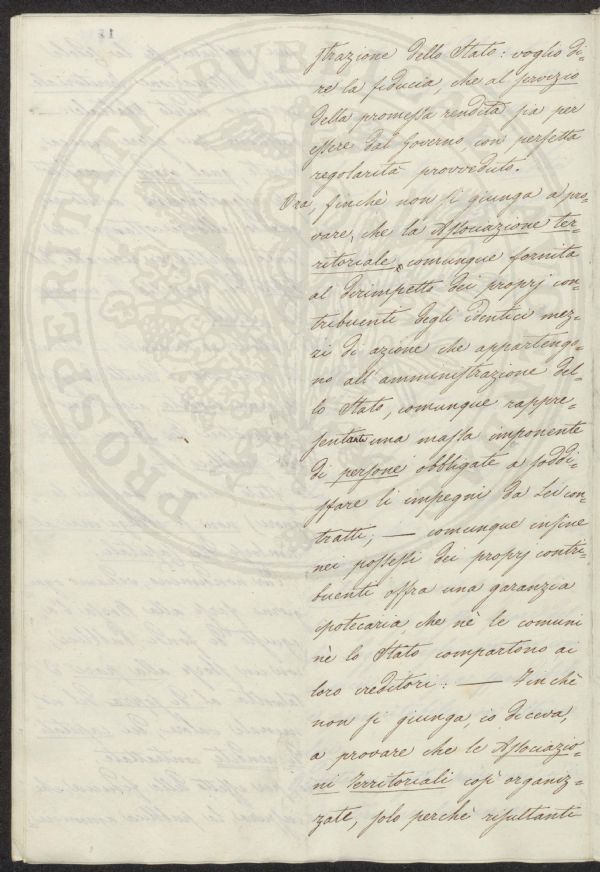 strazione dello Stato: voglio di-
re la fiducia, che al servizio
della promessa rendita sia per
essere dal Governo, con perfetta
regolarità provveduto.
Ora, finchè non si giunga a pro-
vare, che la Associazione ter-
ritoriale, comunque fornita
al dirimpetto dei proprj con-
tribuenti degli identici mez-
zi di azione che appartengo-
no all'amministrazione del-
lo Stato, comunque rappre-
sentante una massa imponente
di persone obbligate a soddi-
sfare li impegni da Lei con-
tratti; — comunque infine
nei possessi dei proprj contri-
buenti offra una garanzia
ipotecaria, che nè le comuni
nè lo Stato compartono ai
loro creditori: — Finchè
non si giunga, io diceva,
a provare che le Associazio-
ni Territoriali così organiz-
zate, solo perchè risultanti
PROSPERITATI PUBL